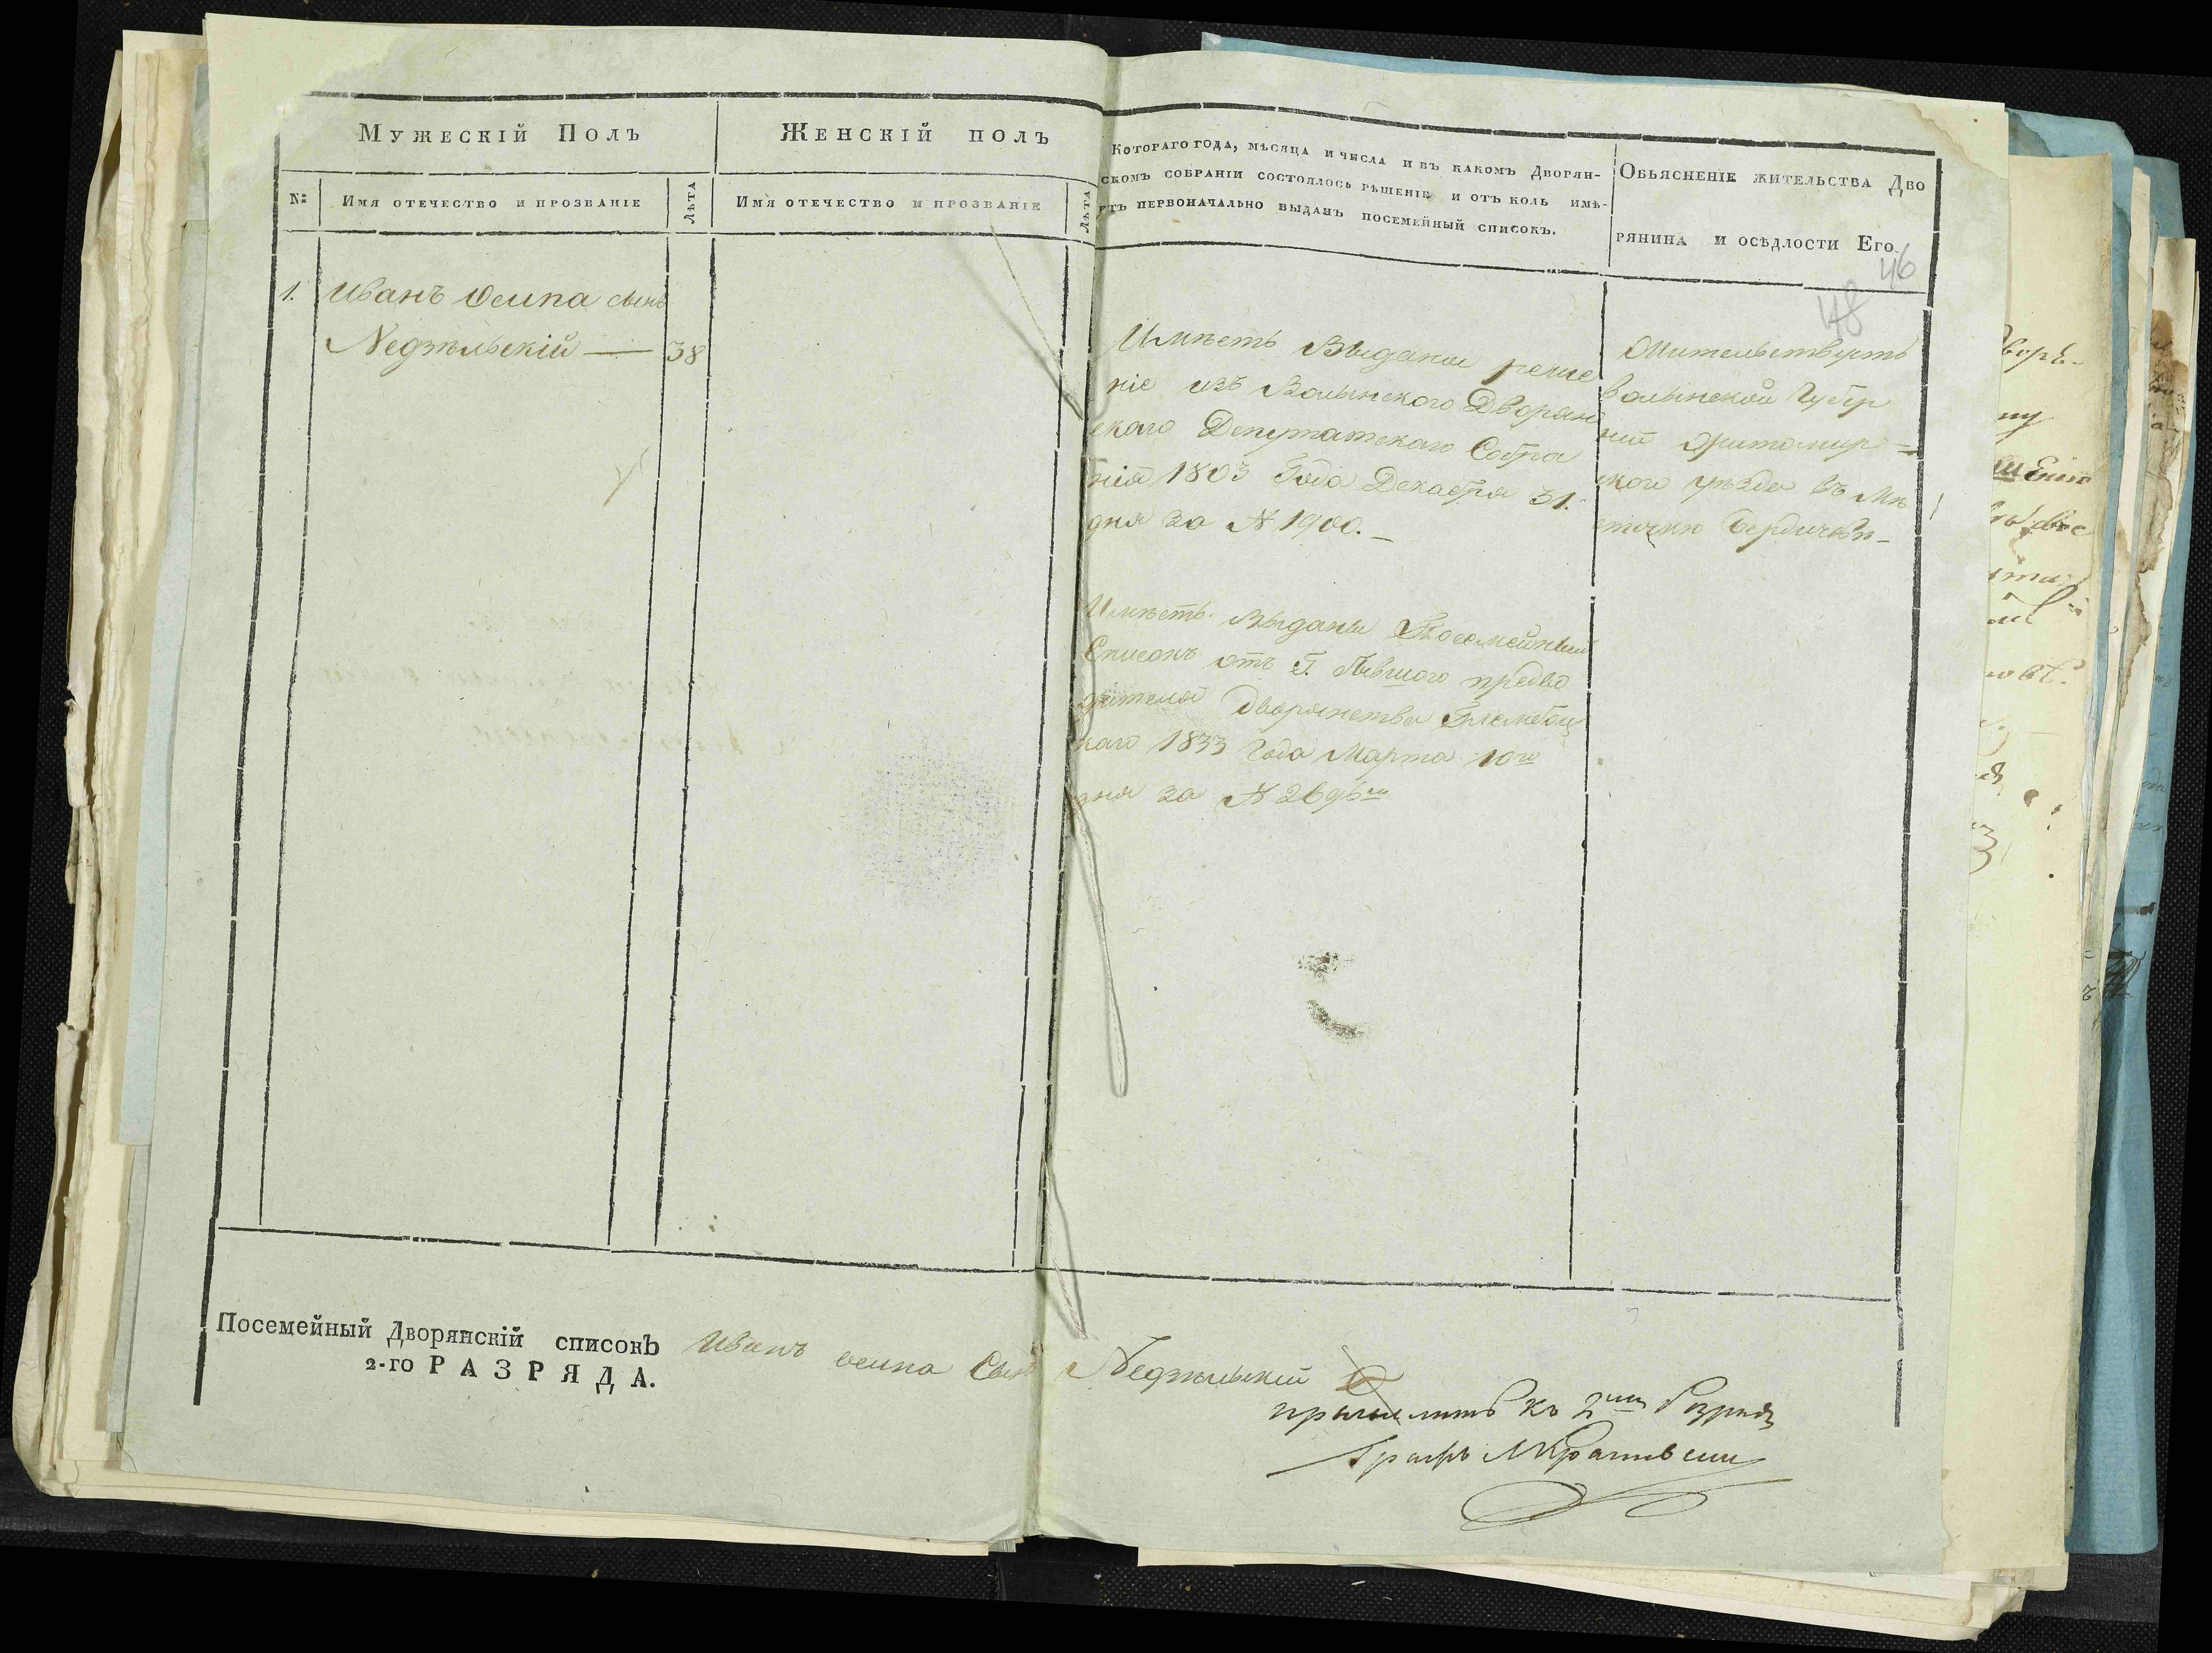 Мужескій Полъ
Женскій полъ
Котораго года, мѣсяца и числа и въ какомъ Дворян-
скомъ собраніи состоялось рѣшеніе и отъ коль имѣ-
етъ первоначально выданъ посемейный списокъ.
Обьясненіе жительства Дво
рянина и осѣдлости Его
N:
Имя отечество и прозваніе
Лѣта
Имя отечество и прозваніе
Лѣта
46
48
1. Иванъ Осипа сынъ
Недзѣльскій — 38
Имѣетъ Выданы реше
ніе изъ Волынского Дворян
скаго Депутатскаго Собра
нія 1803 Года Декабря 31.
дня за N 1900. –
Имѣетъ Выданы Посемейный
Списокъ отъ Г. Бывшого предво
дителя Дворянства
каго 1833 Года Марта 10го
дня за N
Жительствуетъ
Волынской Губер
ніи Житомир=
ского уѣзда въ Мѣ
стечкѣ Бердичевѣ-
Посемейный Дворянскій списокъ
2-го РАЗРЯДА.
Иванъ осипа Сынъ Недзѣльскій
къ 2му Разряду
Графъ